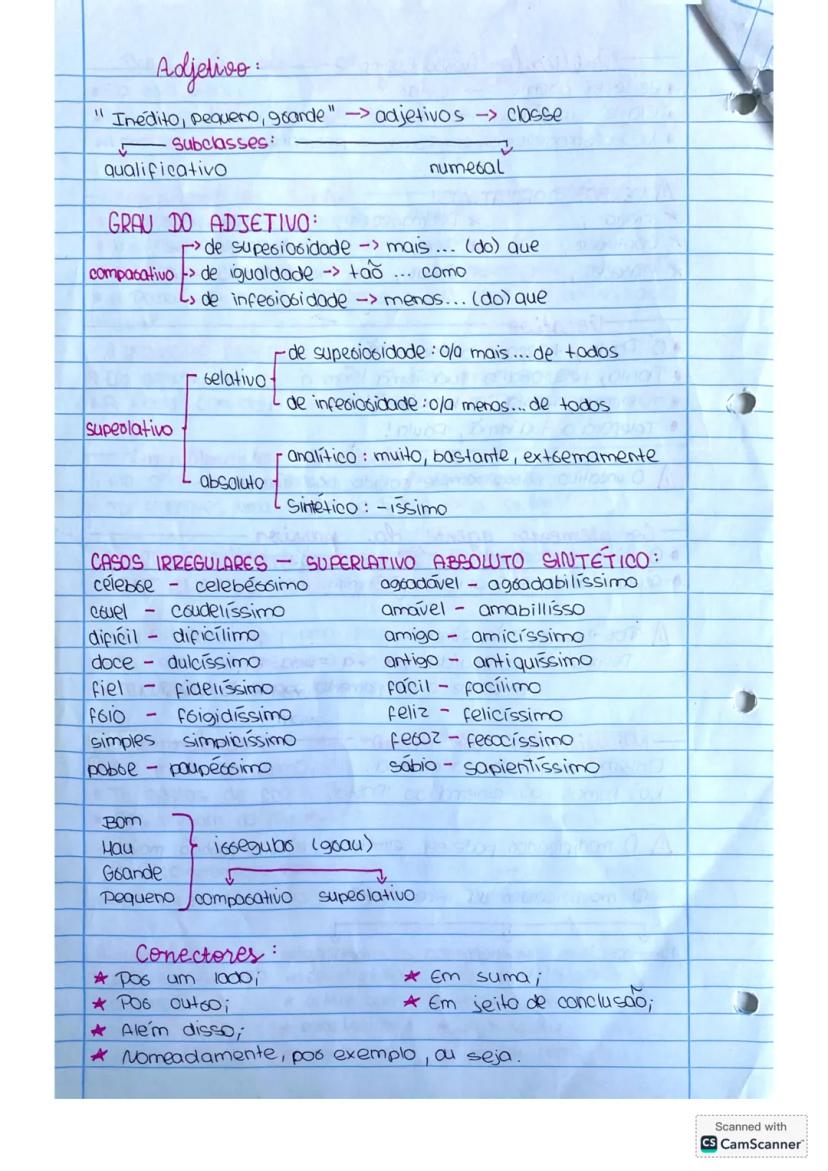 Adjetivo:
"Inédito, pequeno, grande" -> adjetivos -> classe
subclasses:
qualificativo numeral
GRAU DO ADJETIVO:
comparativo
-> de superioridade -> mais... (do) que
-> de igualdade -> tão ... como
-> de inferioridade -> menos... (do) que
superlativo
relativo
de superioridade: o/a mais... de todos
de inferioridade: o/a menos... de todos
absoluto
analítico: muito, bastante, extremamente
Sintético: -íssimo
CASOS IRREGULARES – SUPERLATIVO ABSOLUTO SINTÉTICO:
célebre - celebérrimo agradável - agradabilíssimo
cruel - crudelíssimo amável - amabillísso
difícil - dificílimo amigo - amicíssimo
doce - dulcíssimo antigo - antiquíssimo
fiel - fidelíssimo fácil - facílimo
frio - frigidíssimo feliz - felicíssimo
simples simplicíssimo feroz - ferocíssimo
pobre - paupérrimo sábio - sapientíssimo
Bom
Mau irregular (grau)
Grande
Pequeno comparativo superlativo
Conectores:
★ Por um lado; ★ Em suma;
★ Por outro; ★ Em jeito de conclusão;
★ Além disso;
★ Nomeadamente, por exemplo, ou seja.
Scanned with
CS CamScanner